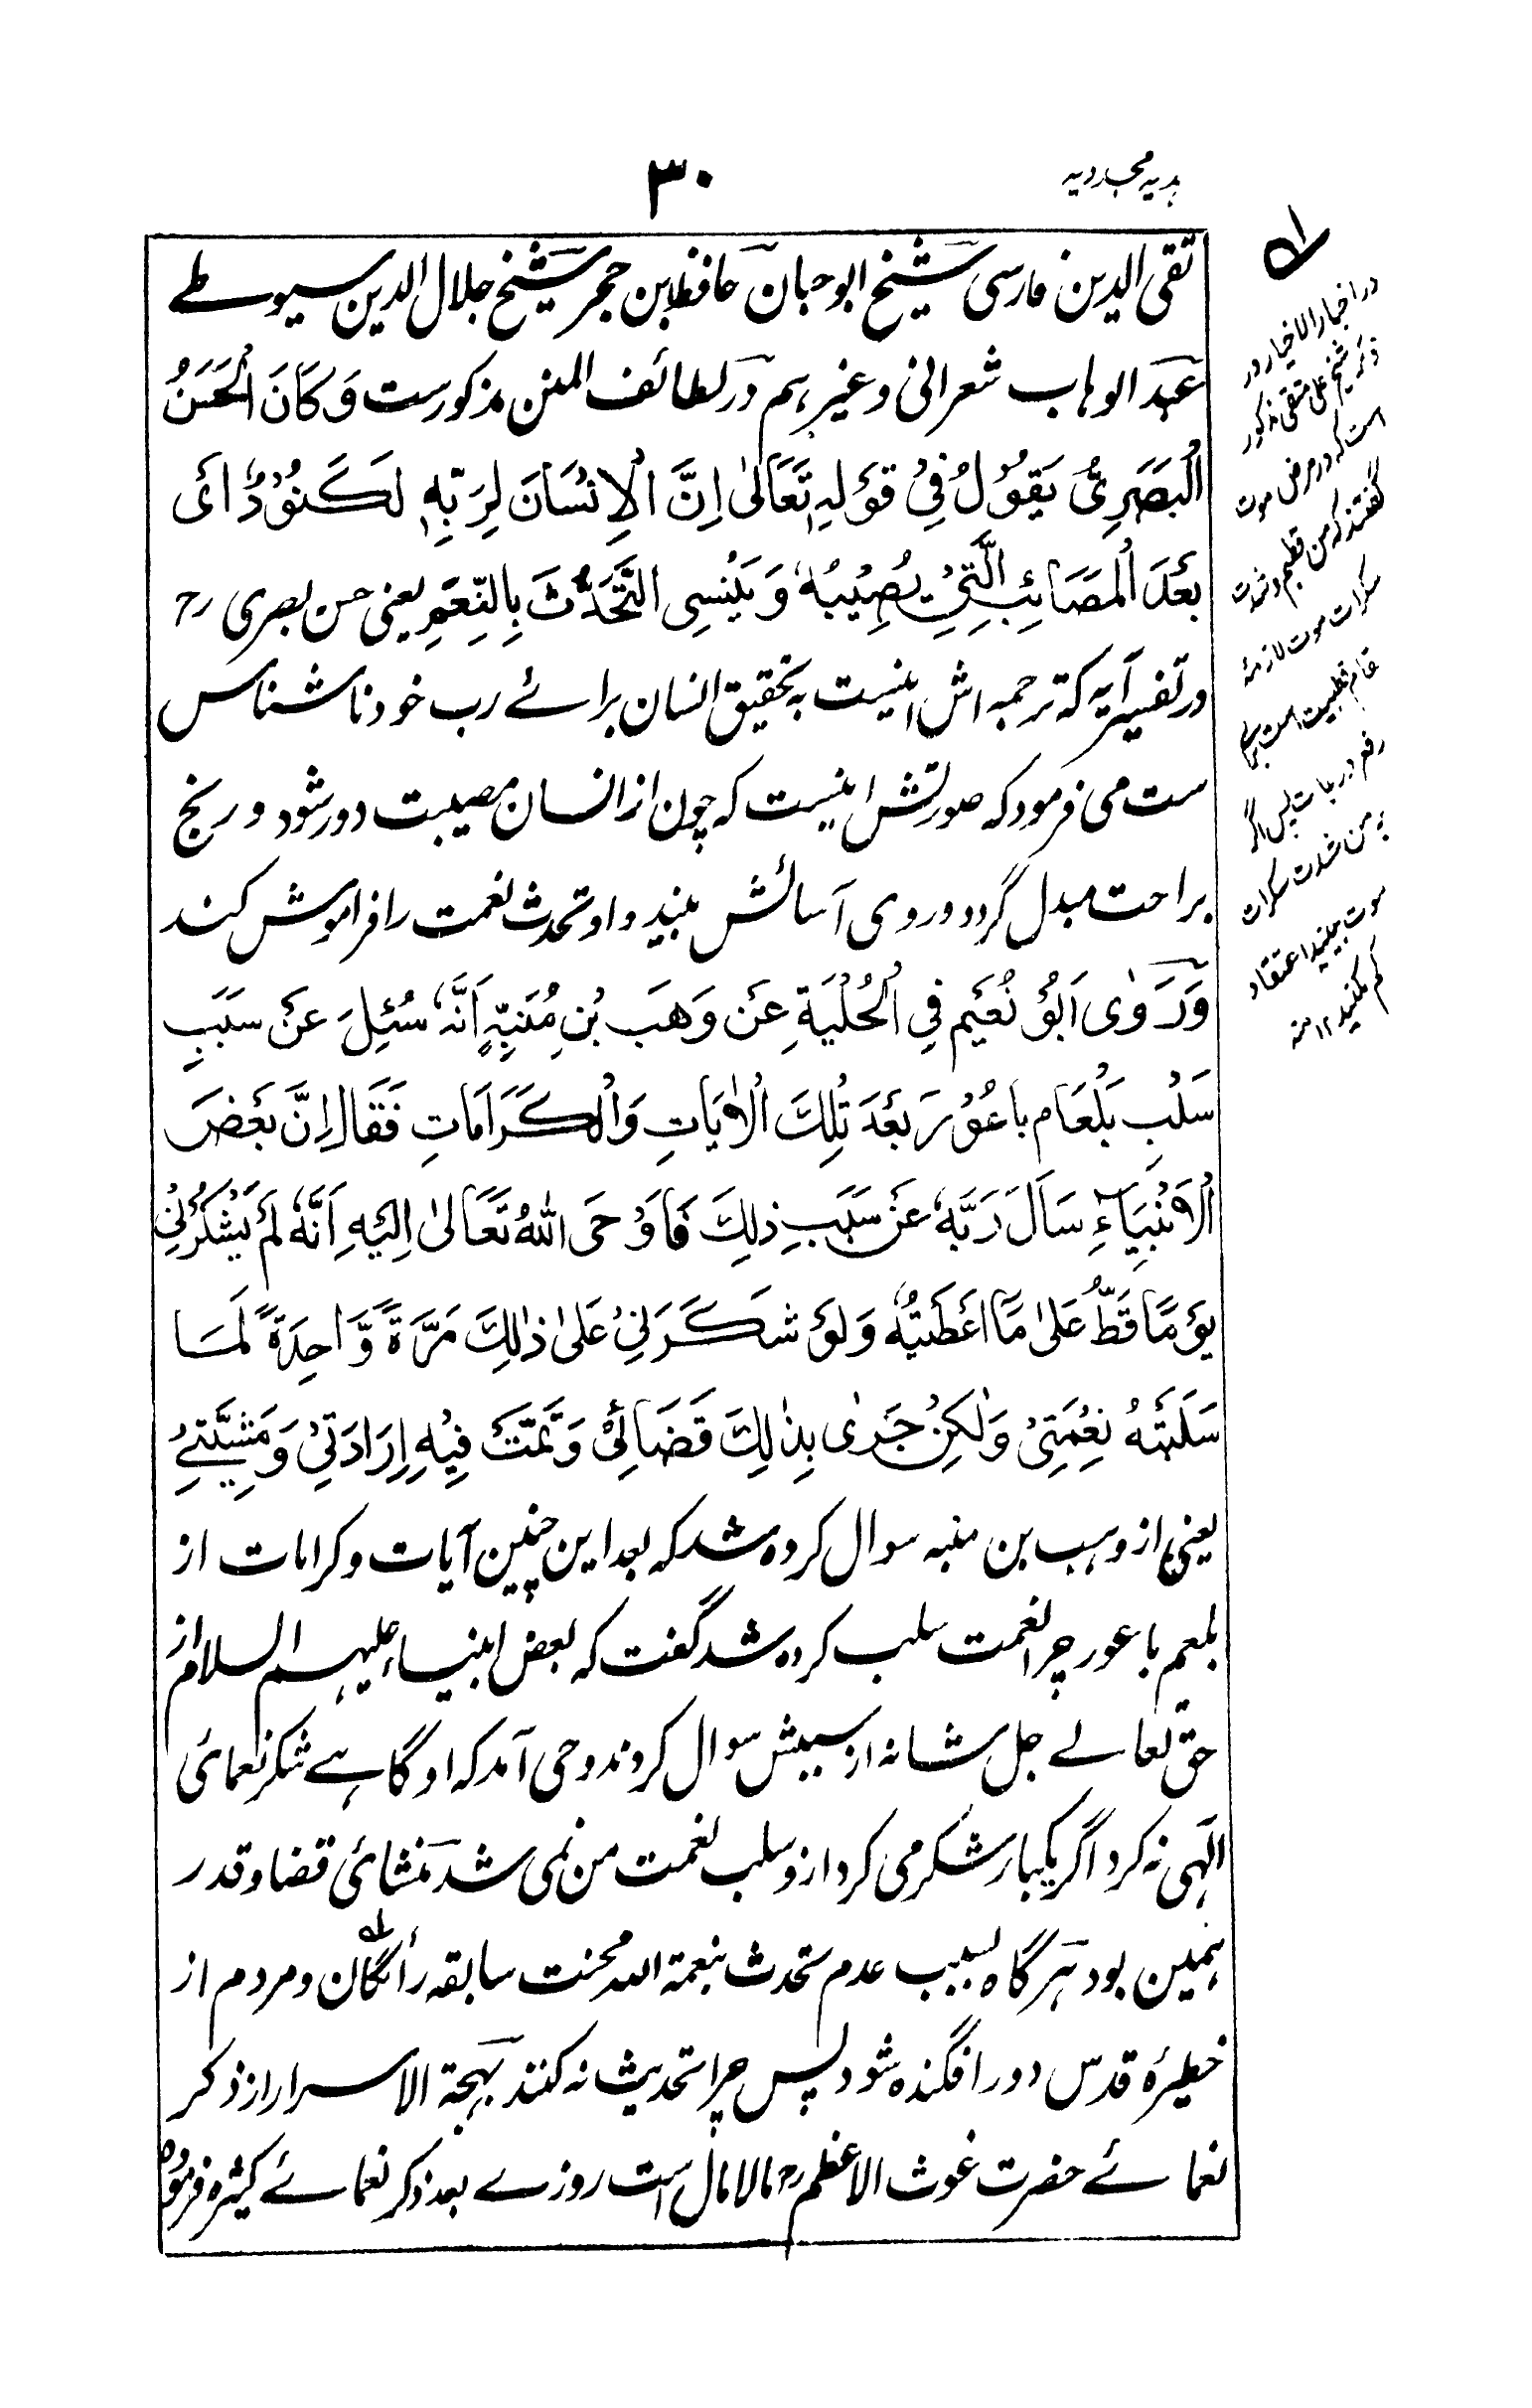 هدیه مجددیه
۳۰
تقی الدین فارسی شیخ ابو حبان حافظ ابن حجر شیخ جلال الدین سیوطے
عبد الوهاب شعرانی وغیرہم در لطائف المنن مذکورست وَكَانَ الْحَسَنُ
الْبَصَرِیُّ یَقُوْلُ فِیْ قَوْلِہٖ تَعَالیٰ اِنَّ الْاِنْسَانَ لِرَبِّہٖ لَکَنُوْدٌ اَیْ
بَعْدَ الْمَصَائِبِ الَّتِیْ تُصِیْبُہٗ وَیَنْسِی التَّحَدُّثَ بِالنِّعَمِ یعنی حسن بصری رح
در تفسیر آیہ کہ ترجمہ اش اینست بہ تحقیق انسان برائے رب خود ناشناس
ست می فرمود کہ صورتش اینست کہ چون از انسان مصیبت دور شود و رنج
براحت مبدل گردد و روی آسائش بیند و او تحدث نعمت را فراموش کند
وَرَوٰی اَبُوْ نُعَیْم فِی الْحُلْیَةِ عَنْ وَهَبْ بْنِ مُنَبِّہٍ اَنَّہٗ سُئِلَ عَنْ سَبَبِ
سَلْبِ بَلْعَام بَاعُوْرَ بَعْدَ تِلْكَ الْاٰیَاتِ وَالْکَرَامَاتِ فَقَالَ اِنَّ بَعْضَ
الْاَنْبِیَاءِ سَاَلَ رَبَّہٗ عَنْ سَبَبِ ذٰلِكَ فَاَوْحَی اللّٰهُ تَعَالیٰ اِلَیْہِ اَنَّہٗ لَمْ یَشْکُرْنِیْ
یَوْمًا قَطُّ عَلیٰ مَا اَعْطَیْتُہٗ وَلَوْ شَکَرَنِیْ عَلیٰ ذٰلِكَ مَرَّةً وَّاحِدَةً لَمَا
سَلَبْتُہُ نِعْمَتِیْ وَلٰکِنْ جَرٰی بِذٰلِكَ قَضَائِیْ وَتَمَّتْ فِیْہِ اِرَادَتِیْ وَمَشِیَّتِیْ
یعنی از وہب بن منبہ سوال کردہ شد کہ بعد این چنین آیات و کرامات از
بلعم باعور چرا نعمت سلب کردہ شد گفت کہ بعض انبیاء علیہم السلام از
حق تعالے جل شانہ از سببش سوال کردند وحی آمد کہ او گاہے شکر نعمائی
الٰہی نہ کرد اگر یکبار شکر می کرد ازو سلب نعمت من نمی شد منشائی قضا و قدر
ہمین بود ہرگاہ بسبب عدم تحدث بنعمۃ اللہ محنت سابقہ رائگان و مردم از
خطیرۂ قدس دور افگندہ شود پس چرا تحدیث نہ کنند بہجۃ الاسرار از ذکر
نعمائے حضرت غوث الاعظم رح مالامال است روزے بعد ذکر نعمائے کثیرہ فرمودہ
در اخبار الاخیار در
ذکر شیخ علی متقی مذکور
است کہ در مرض موت
گفتند کہ من قطبم و شدت
سکرات موت لازمۂ
مقام قطبیت است برای
رفع درجات پس اگر
بر من شدت سکرات
موت ببینید اعتقاد
کم نکنید ۱۲ منہ